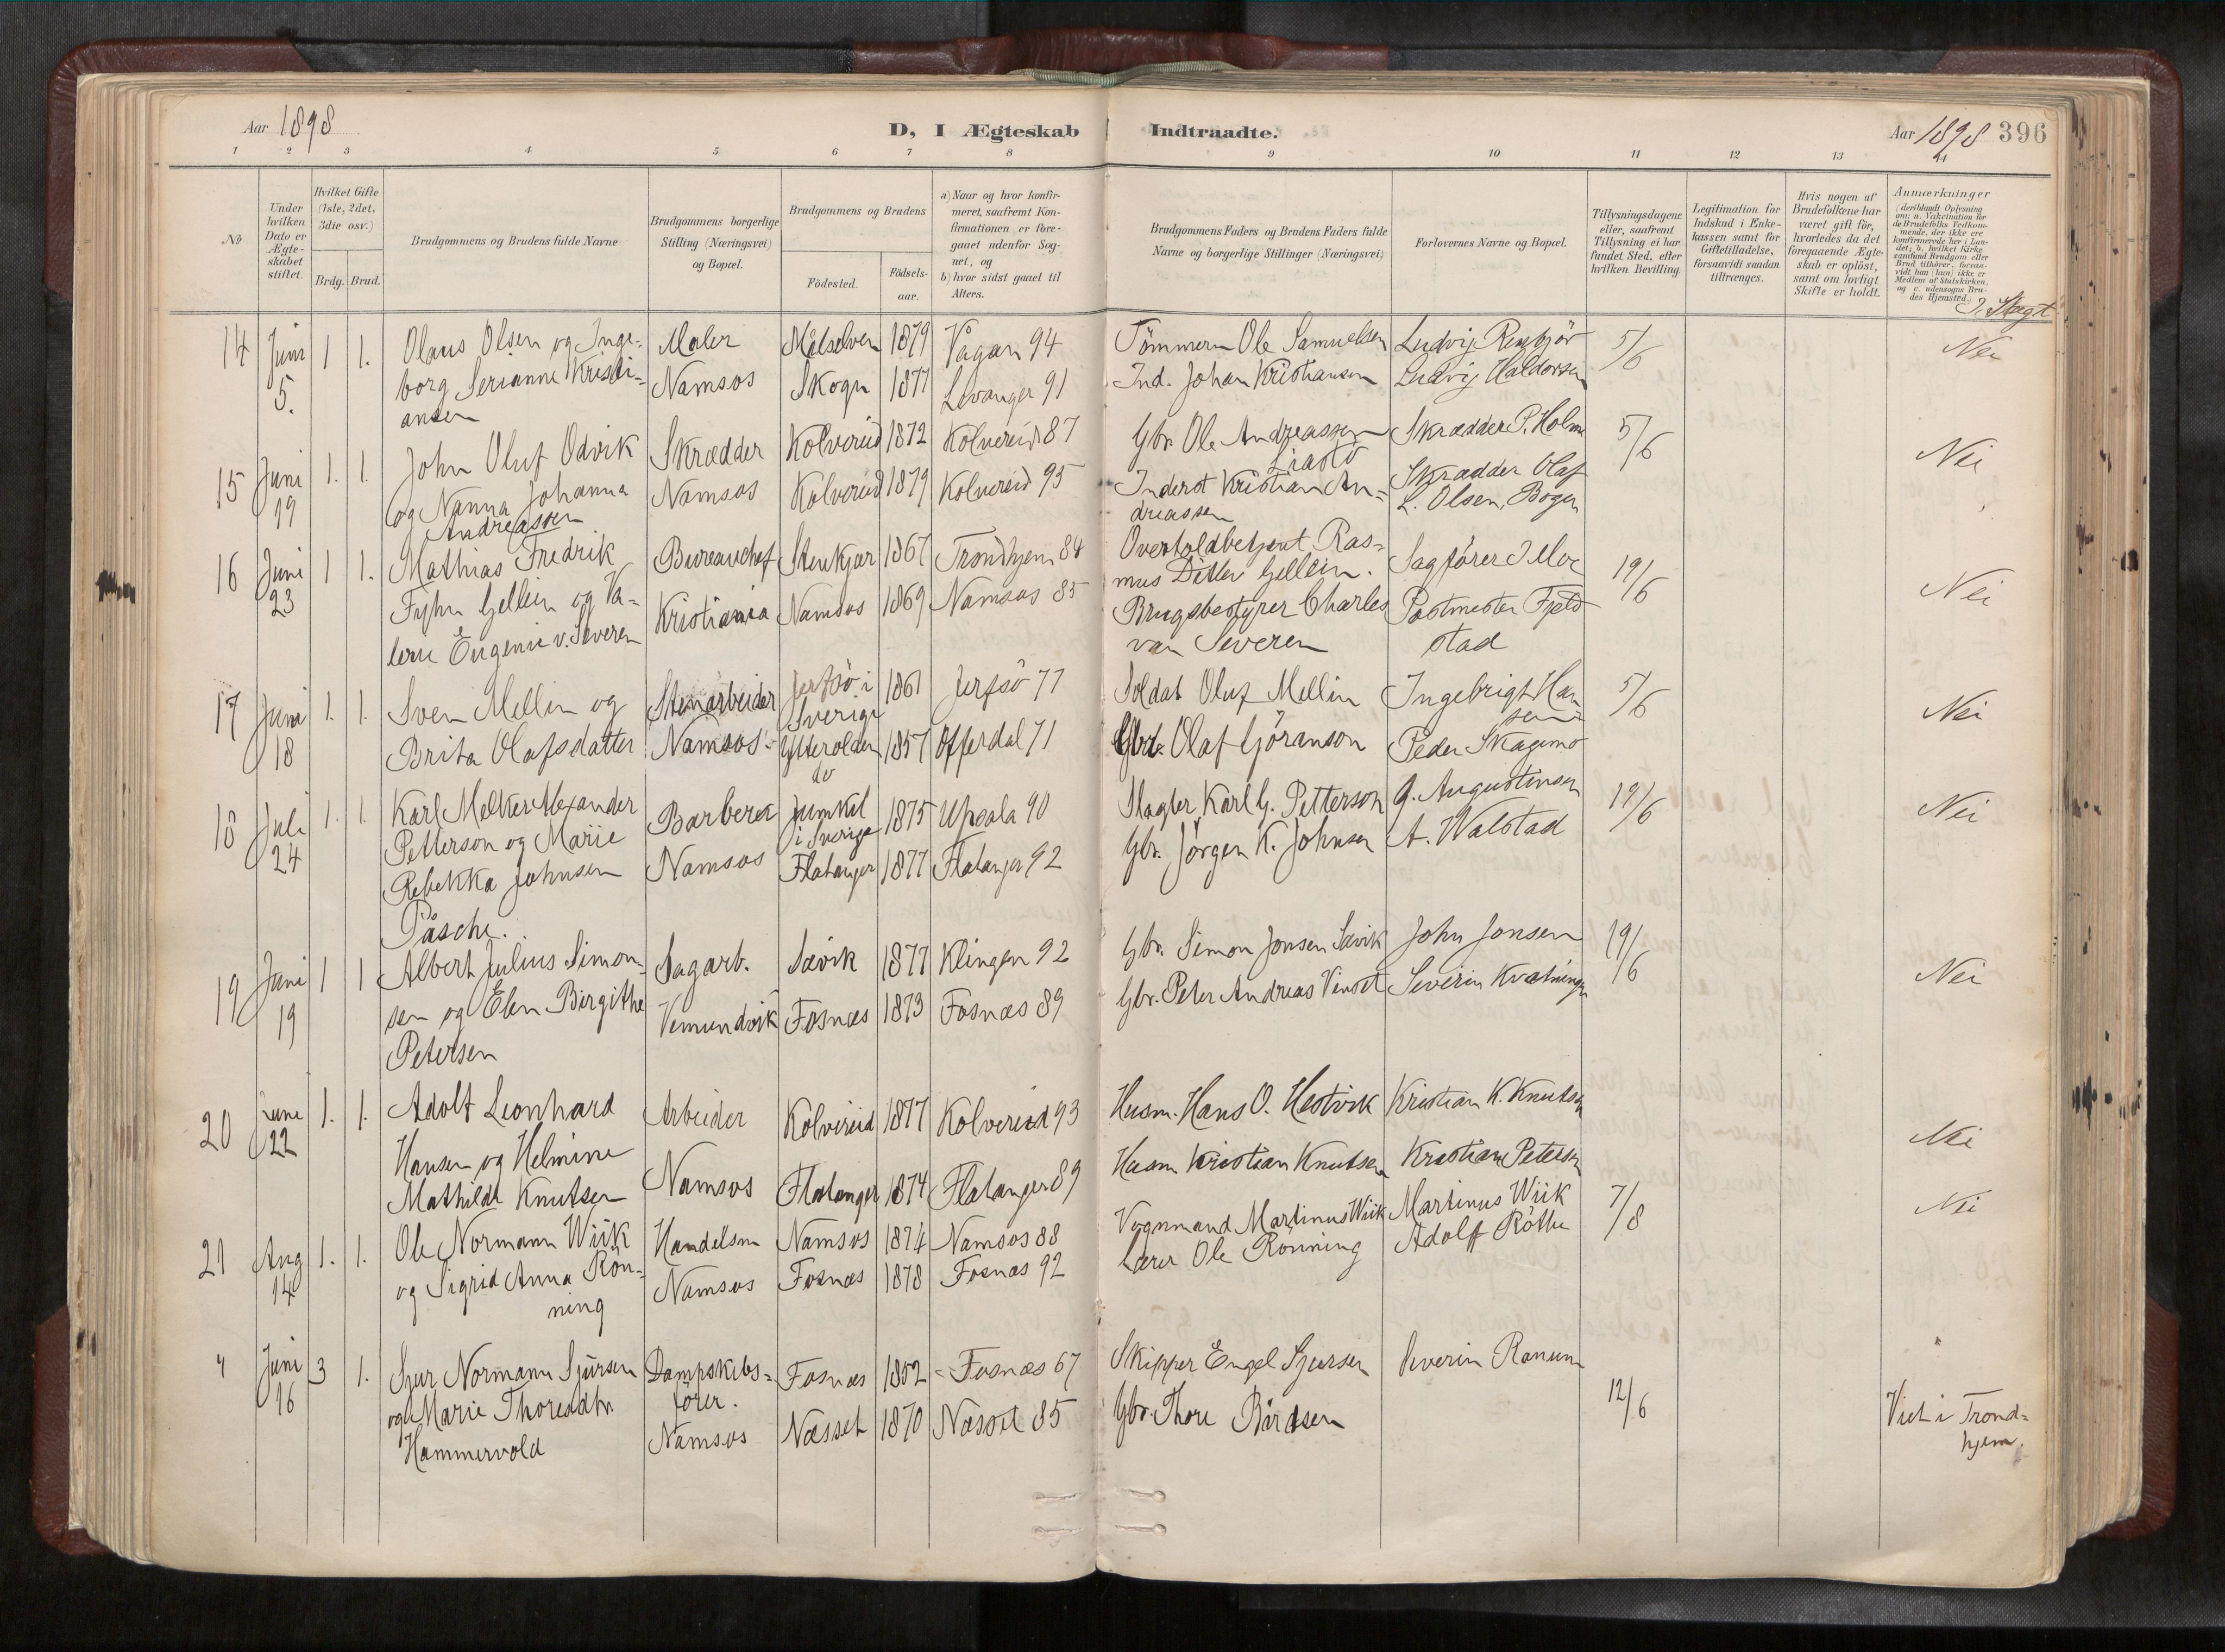 Aar 1898
D, I Ægteskab Indtraadte.
Aar 1898 396
1 2 3 4 5 6 7 8 9 10 11 12 13 14
No
Under hvilken Dato er Ægteskabet stiftet.
Hvilket Gifte (1ste, 2det, 3die osv.)
Brdg. Brud.
Brudgommens og Brudens fulde Navne
Brudgommens borgerlige Stilling (Næringsvei) og Bopæl.
Brudgommens og Brudens
Födested.
Födsels-aar.
a) Naar og hvor konfirmeret, saafremt Konfirmationen er foregaaet udenfor Sognet, og
b) hvor sidst gaaet til Alters.
Brudgommens Faders og Brudens Faders fulde Navne og borgerlige Stillinger (Næringsvei)
Forlovernes Navne og Bopæl.
Tillysningsdagene eller, saafremt Tillysning ei har fundet Sted, efter hvilken Bevilling.
Legitimation for Indskud i Enkekassen samt for Giftetilladelse, forsaavidt saadan tiltrænges.
Hvis nogen af Brudefolkene har været gift för, hvorledes da det foregaaende Ægteskab er oplöst, samt om lovligt Skifte er holdt.
Anmærkninger
(deriblandt Oplysning om: a. Vakcination for de Brudefolks Vedkommende, der ikke ere konfirmerede her i Landet; b. hvilket Kirkesamfund Brudgom eller Brud tilhörer, forsaavidt han (hun) ikke er Medlem af Statskirken, og c. udensogns Brudes Hjemsted.)
14 Juni 5. 1 1. Olaus Olsen og Inge-
borg Serianne Kristi-
ansen
Maler Målselven 1879 Vågan 94
Namsos Skogn 1877 Levanger 91
Tömmerm Ole Samuelsen
Ind. Johan Kristiansen
Ludvig Renbjör
Ludvig Haldorsen
5/6 Nei
15 Juni 19 1. 1. John Oluf Odvik
og Nanna Johanna
Andreassen
Skrædder Kolvereid 1872 Kolvereid 87
Namsos Kolvereid 1879 Kolvereid 95
Gbr. Ole Andreassen
Liasö
Inderst Kristian An-
dreassen
Skrædder P. Holm
Skrædder Olaf
L. Olsen, Bogen
5/6 Nei
16 Juni 23 1 1. Mathias Fredrik
Fyhn Gellein og Va-
lerie Eugenie v. Severen
Bureauchef Stenkjær 1867 Trondhjem 84
Kristiania Namsos 1869 Namsos 85
Overtoldbetjent Ras-
mus Ditlev Gellein.
Brugsbestyrer Charles
van Severen
Sagförer I Moe
Postmester Fjeld
stad
19/6 Nei
17 Juni 18 1. 1. Sven Mellin og
Brita Olafsdatter
Stenarbeider Jerfsö i 1861 Jerfsö 77
Sverige
Namsos Ytterolden 1857 Offerdal 71
do
Soldat Oluf Mellin
Gbr. Olaf Göranson
Ingebrigt Han
sen
Peder Skagemo
5/6 Nei
18 Juli 24 1. 1. Karl Melker Alexander
Petterson og Marie
Rebekka Johnsen
Påsche.
Barberer Jumkil 1875 Upsala 90
i Sverige
Namsos Flatanger 1877 Flatanger 92
Slagter Karl G. Petterson
Gbr. Jörgen K. Johnsen
G. Augustinsen
A. Walstad
19/6 Nei
19 Juni 19 1 1 Albert Julius Simon-
sen og Elen Birgithe
Petersen
Sagarb. Sævik 1877 Klingen 92
Vemundvik Fosnæs 1873 Fosnæs 89
Gbr. Simon Jonsen Sævik
Gbr. Peter Andreas
John Jonsen
Severin Kvatningen
19/6 Nei
20 Juni 22 1. 1. Adolf Leonhard
Hansen og Helmine
Mathilde Knutsen
Arbeider Kolvereid 1877 Kolvereid 93
Namsos Flatanger 1874 Flatanger 89
Husm. Hans O. Hestvik
Husm Kristian Knutsen
Kristian K. Knutsen
Kristian Petersen
Nei
21 Aug 14 1. 1. Ole Normann Wiik
og Sigrid Anna Rön-
ning
Handelsm Namsos 1874 Namsos 88
Namsos Fosnæs 1878 Fosnæs 92
Vognmand Martinus Wiik
Lærer Ole Rönning
Martinus Wiik
Adolf Röthe
7/8 Nei
4 Juni 16 3 1. Sjur Normann Sjursen
og Marie Thoresdtr
Hammervold
Dampskibs-
förer. Fosnæs 1852 Fosnæs 67
Namsos Næsset 1870 Næsset 85
Skipper Engel Sjursen
Gbr. Thore Bårdsen
Severin Ranum
12/6 Viet i Trond-
hjem.